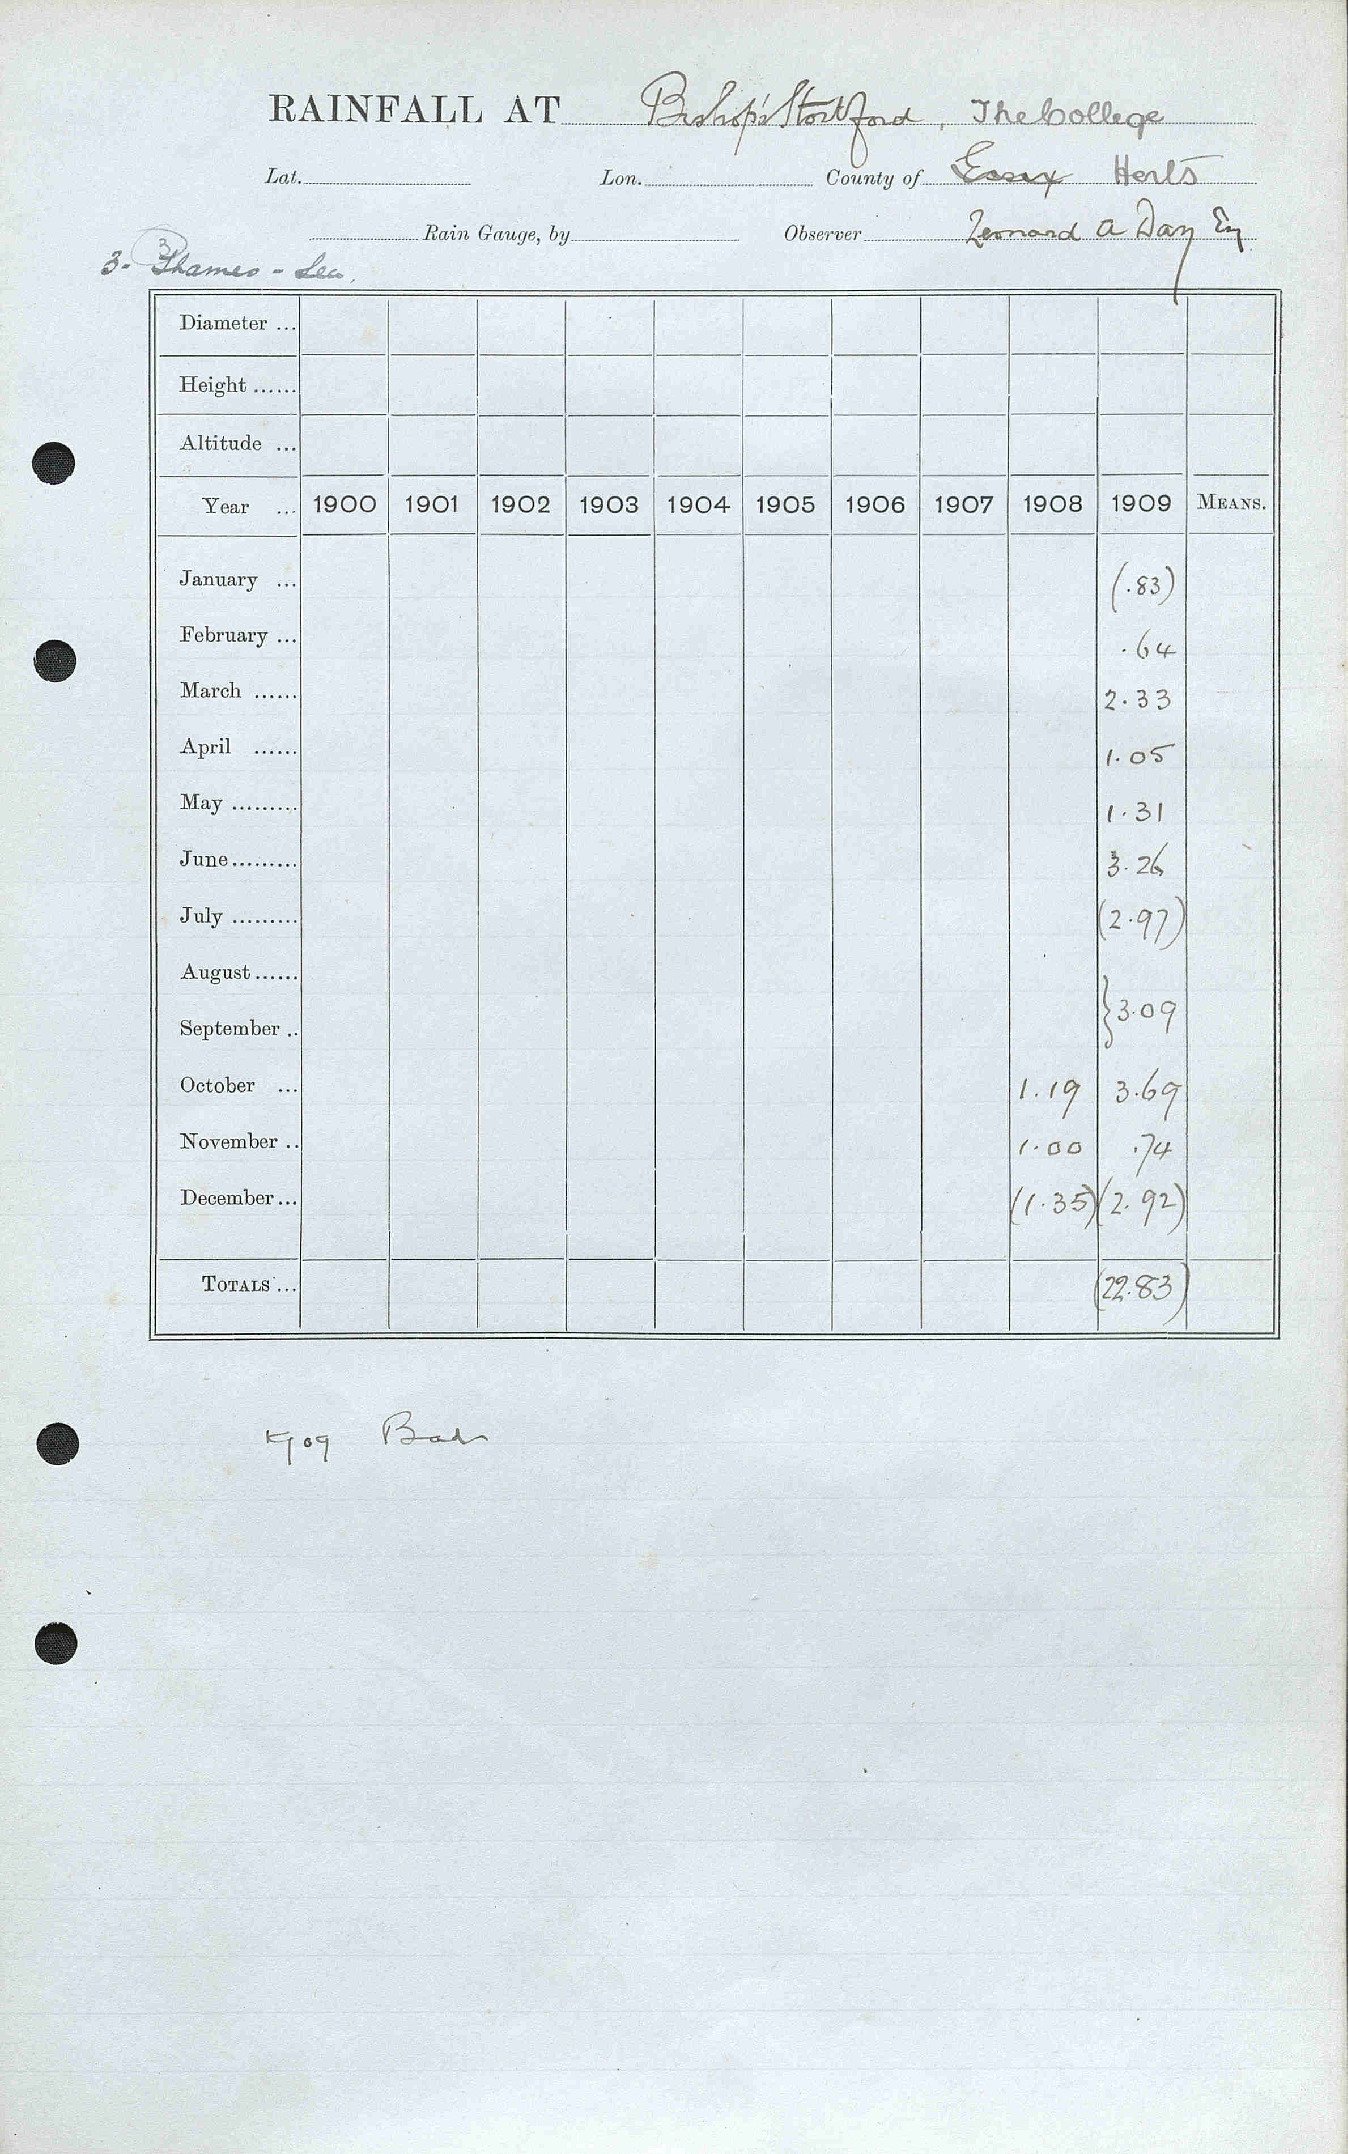 RAINFALL AT Bishop's Stortford, The College
Lat. Lon. County of Essex Herts
Rain Gauge, by Observer Leonard A Day Esq
3. Thames - Lea.
Diameter ...
Height ......
Altitude ...
Year ... 1900 1901 1902 1903 1904 1905 1906 1907 1908 1909 MEANS.
January ... (.83)
February ... .64
March ...... 2.33
April ...... 1.05
May ......... 1.31
June......... 3.26
July ......... (2.97)
August......
September .. }3.09
October ... 1.19 3.69
November .. 1.00 .74
December... (1.35) (2.92)
TOTALS ... (22.83)
09 Bad